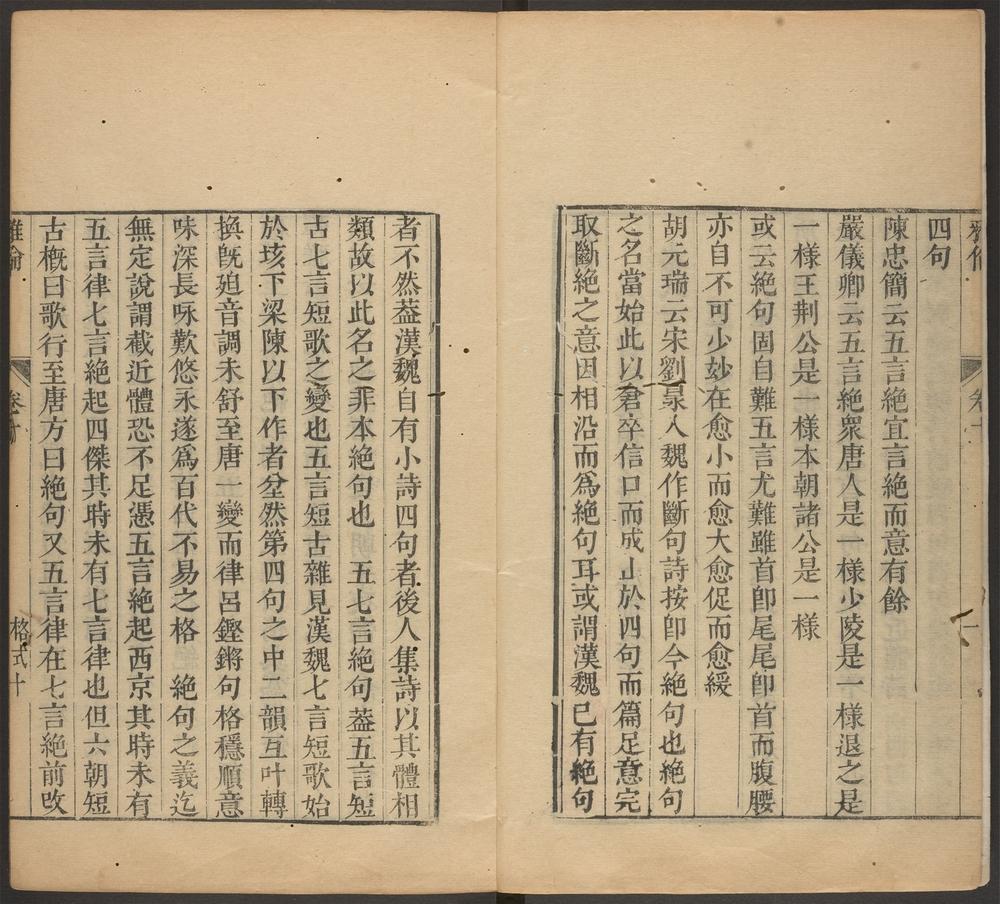 四句
陳忠簡云五言絕宜言絕而意有餘
嚴儀卿云五言絕衆唐人是一樣少陵是一樣退之是
一樣王荆公是一樣本朝諸公是一樣
或云絕句固自難五言尤難雖首卽尾尾卽首而腹腰
亦自不可少妙在愈小而愈大愈促而愈緩
胡元瑞云宋劉㫤入魏作斷句詩按卽今絕句也絕句
之名當始此以倉卒信口而成止於四句而篇足意完
取斷絕之意因相沿而爲絕句耳或謂漢魏已有絕句
者不然葢漢魏自有小詩四句者後人集詩以其體相
類故以此名之非本絕句也 五七言絕句葢五言短
古七言短歌之變也五言短古雜見漢魏七言短歌始
於垓下梁陳以下作者坌然第四句之中二韻互叶轉
換旣廹音調未舒至唐一變而律呂鏗鏘句格穩順意
味深長咏歎悠永遂爲百代不易之格 絕句之義迄
無定說謂截近體恐不足憑五言絕起西京其時未有
五言律七言絕起四傑其時未有七言律也但六朝短
古槪曰歌行至唐方曰絕句又五言律在七言絕前攺
卷十
格式十